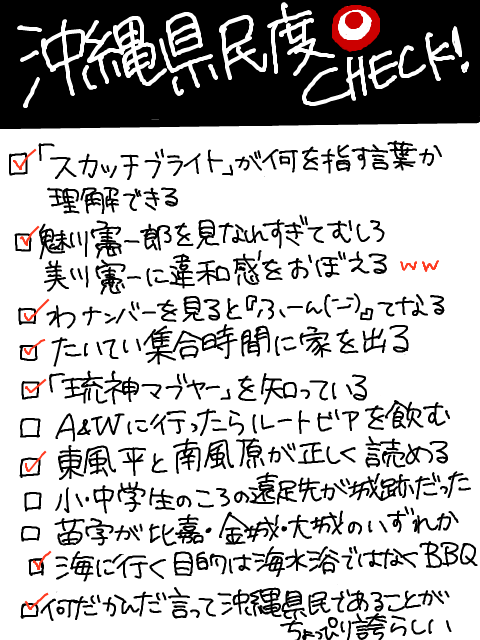 沖縄県民度
CHECK!
「スカッチブライト」が何を指す言葉か
理解できる
魅川憲一郎を見なれすぎてむしろ
美川憲一に違和感をおぼえるww
わナンバーを見ると『ふーん(ーー)』てなる
たいてい集合時間に家を出る
「琉神マブヤー」を知っている
A&Wに行ったらルートビアを飲む
東風平と南風原が正しく読める
小・中学生のころの遠足先が城跡だった
苗字が比嘉・金城・大城のいずれか
海に行く目的は海水浴ではなくBBQ
何だかんだ言って沖縄県民であることが
ちょっぴり誇らしい